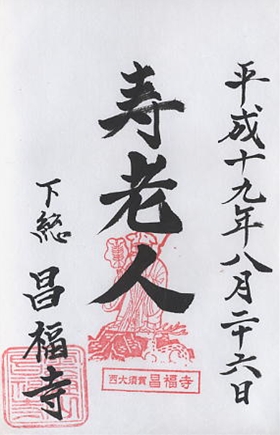 平成十九年八月二十六日
寿老人
西大須賀 昌福寺
下総 昌福寺